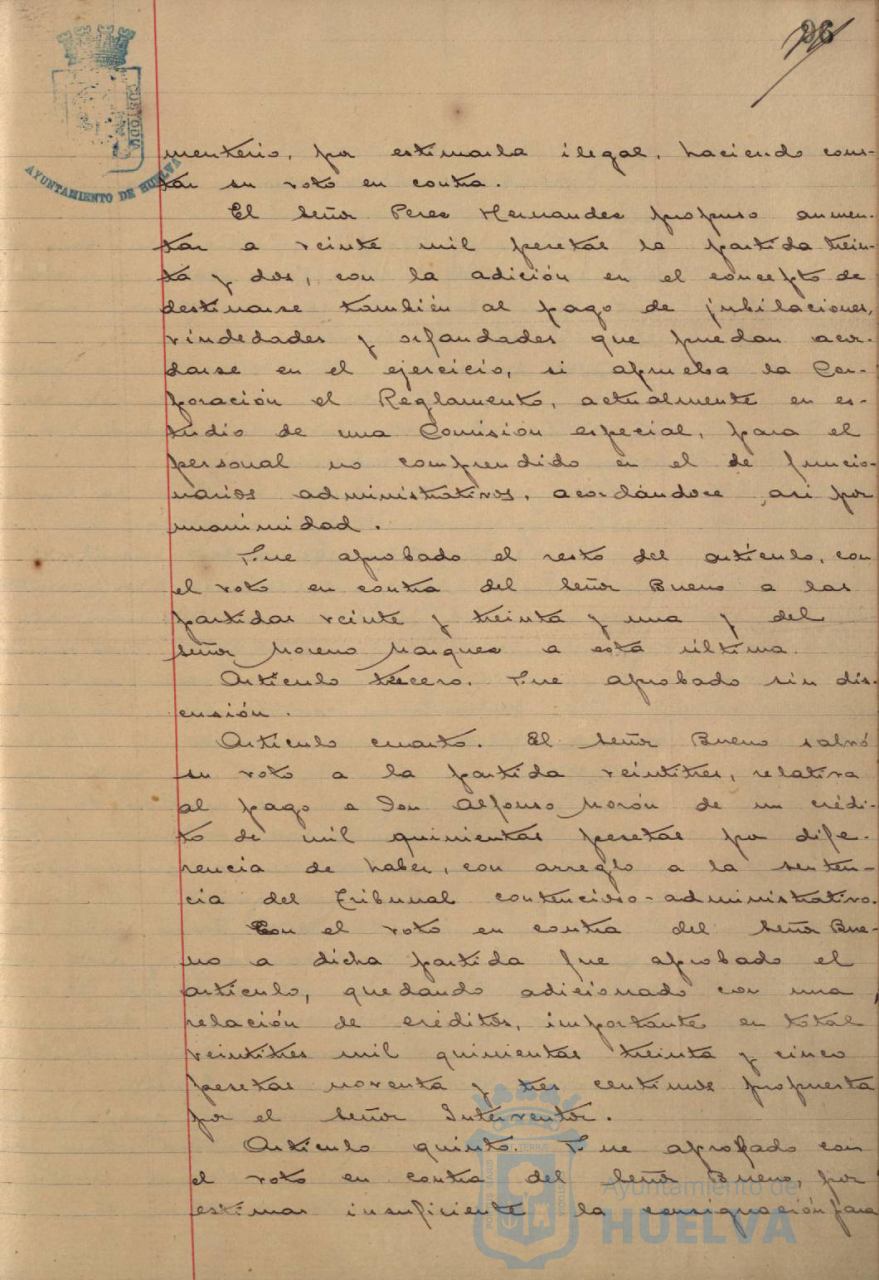 96
CUSTODIA
AYUNTAMIENTO DE HUELVA
menterio, por estimarla ilegal, haciendo cons-
tar su voto en contra.
El Señor Peres Hernandes propuso aumen-
tar a veinte mil pesetas la partida trein-
ta y dos, con la adición en el concepto de
destinarse también al pago de jubilaciones,
viudedades y orfandades que puedan acor-
darse en el ejercicio, si aprueba la Cor-
poración el Reglamento, actualmente en es-
tudio de una Comisión especial, para el
personal no comprendido en el de funcio-
narios administrativos, acordándoce asi por
unanimidad.
Fue aprobado el resto del artículo, con
el voto en contra del Señor Bueno a las
partidas veinte y treinta y una y del
Señor Moreno Marques a esta última.
Artículo tercero. Fue aprobado sin dis-
cusión.
Artículo cuarto. El Señor Bueno salvó
su voto a la partida veintitres, relativa
al pago a Don Alfonso Morón de un crédi-
to de mil quinientas pesetas por dife-
rencia de haber, con arreglo a la senten-
cia del Tribunal contencioso-administrativo.
Con el voto en contra del Señor Bue-
no a dicha partida fue aprobado el
artículo, quedando adicionado con una
relación de créditos, importante en total
veintitres mil quinientas treinta y cinco
pesetas noventa y tres centimos propuesta
por el Señor Interventor.
Artículo quinto. Fue aprobado con
el voto en contra del Señor Bueno, por
estimar insuficiente la consignación para
Ayuntamiento de
HUELVA